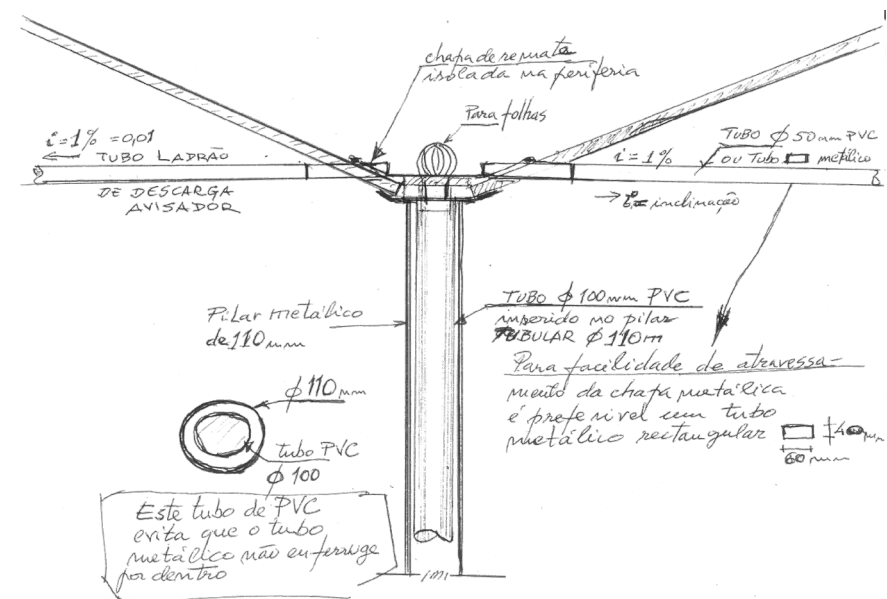 chapa de remate
isolada na periferia
Para folhas
i=1% =0,01
TUBO LADRÃO
DE DESCARGA
AVISADOR
i=1%
TUBO Ø 50mm PVC
OU TUBO metálico
i= inclinação
Pilar metálico
de 110mm
TUBO Ø 100mm PVC
inserido no pilar
TUBULAR Ø 110m
Para facilidade de atravessa-
mento da chapa metálica
é preferivel um tubo
metálico rectangular
40mm
60mm
Ø 110mm
tubo PVC
Ø 100
Este tubo de PVC
evita que o tubo
metálico não enferruge
por dentro